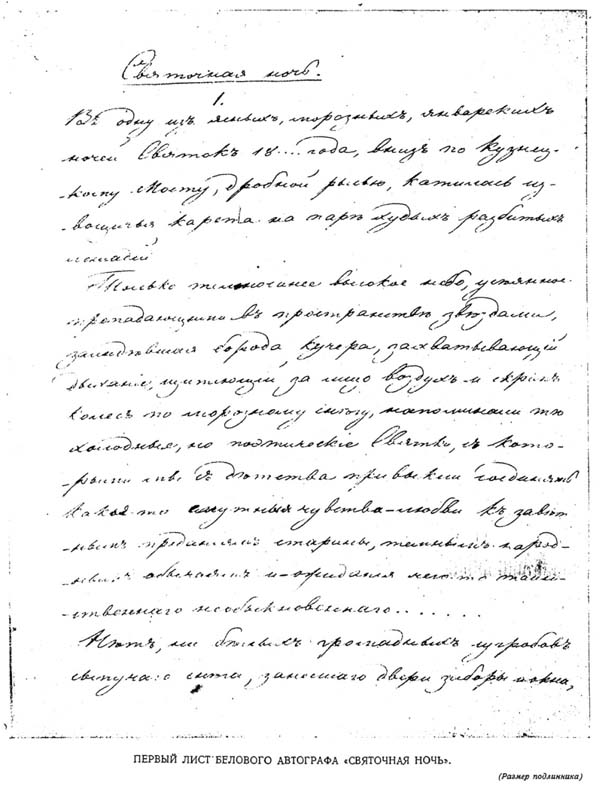 Святочная ночь.
1.
Въ одну изъ ясныхъ, морозныхъ, январскихъ
ночей Святокъ 18.... года, внизъ по кузнец-
-кому мосту, дробной рысью, катилась из-
-вощичья карета на парѣ худыхъ разбитыхъ
лошадей
Только темносинее высокое небо, усѣянное
пропадающими въ пространствѣ звѣздами,
заиндѣвшая борода кучера, захватывающій
дыханіе, щиплющій за лицо воздухъ и скрипъ
колесъ по морозному снѣгу, напоминали тѣ
холодныя, но поэтическіе Святки, съ кото-
-рыми мы съ дѣтства привыкли соединять
какія то смутныя чувства - любви къ завѣт-
-нымъ преданіямъ старины, темнымъ народ-
-нымъ обычаямъ и - ожиданія чего то таин-
-ственнаго необыкновеннаго.......
Нѣтъ, ни бѣлыхъ громадныхъ сугробовъ
сыпучаго снѣга, занесшаго двери заборы и окна,
ПЕРВЫЙ ЛИСТ БЕЛОВОГО АВТОГРАФА «СВЯТОЧНАЯ НОЧЬ».
(Размер подлинника)